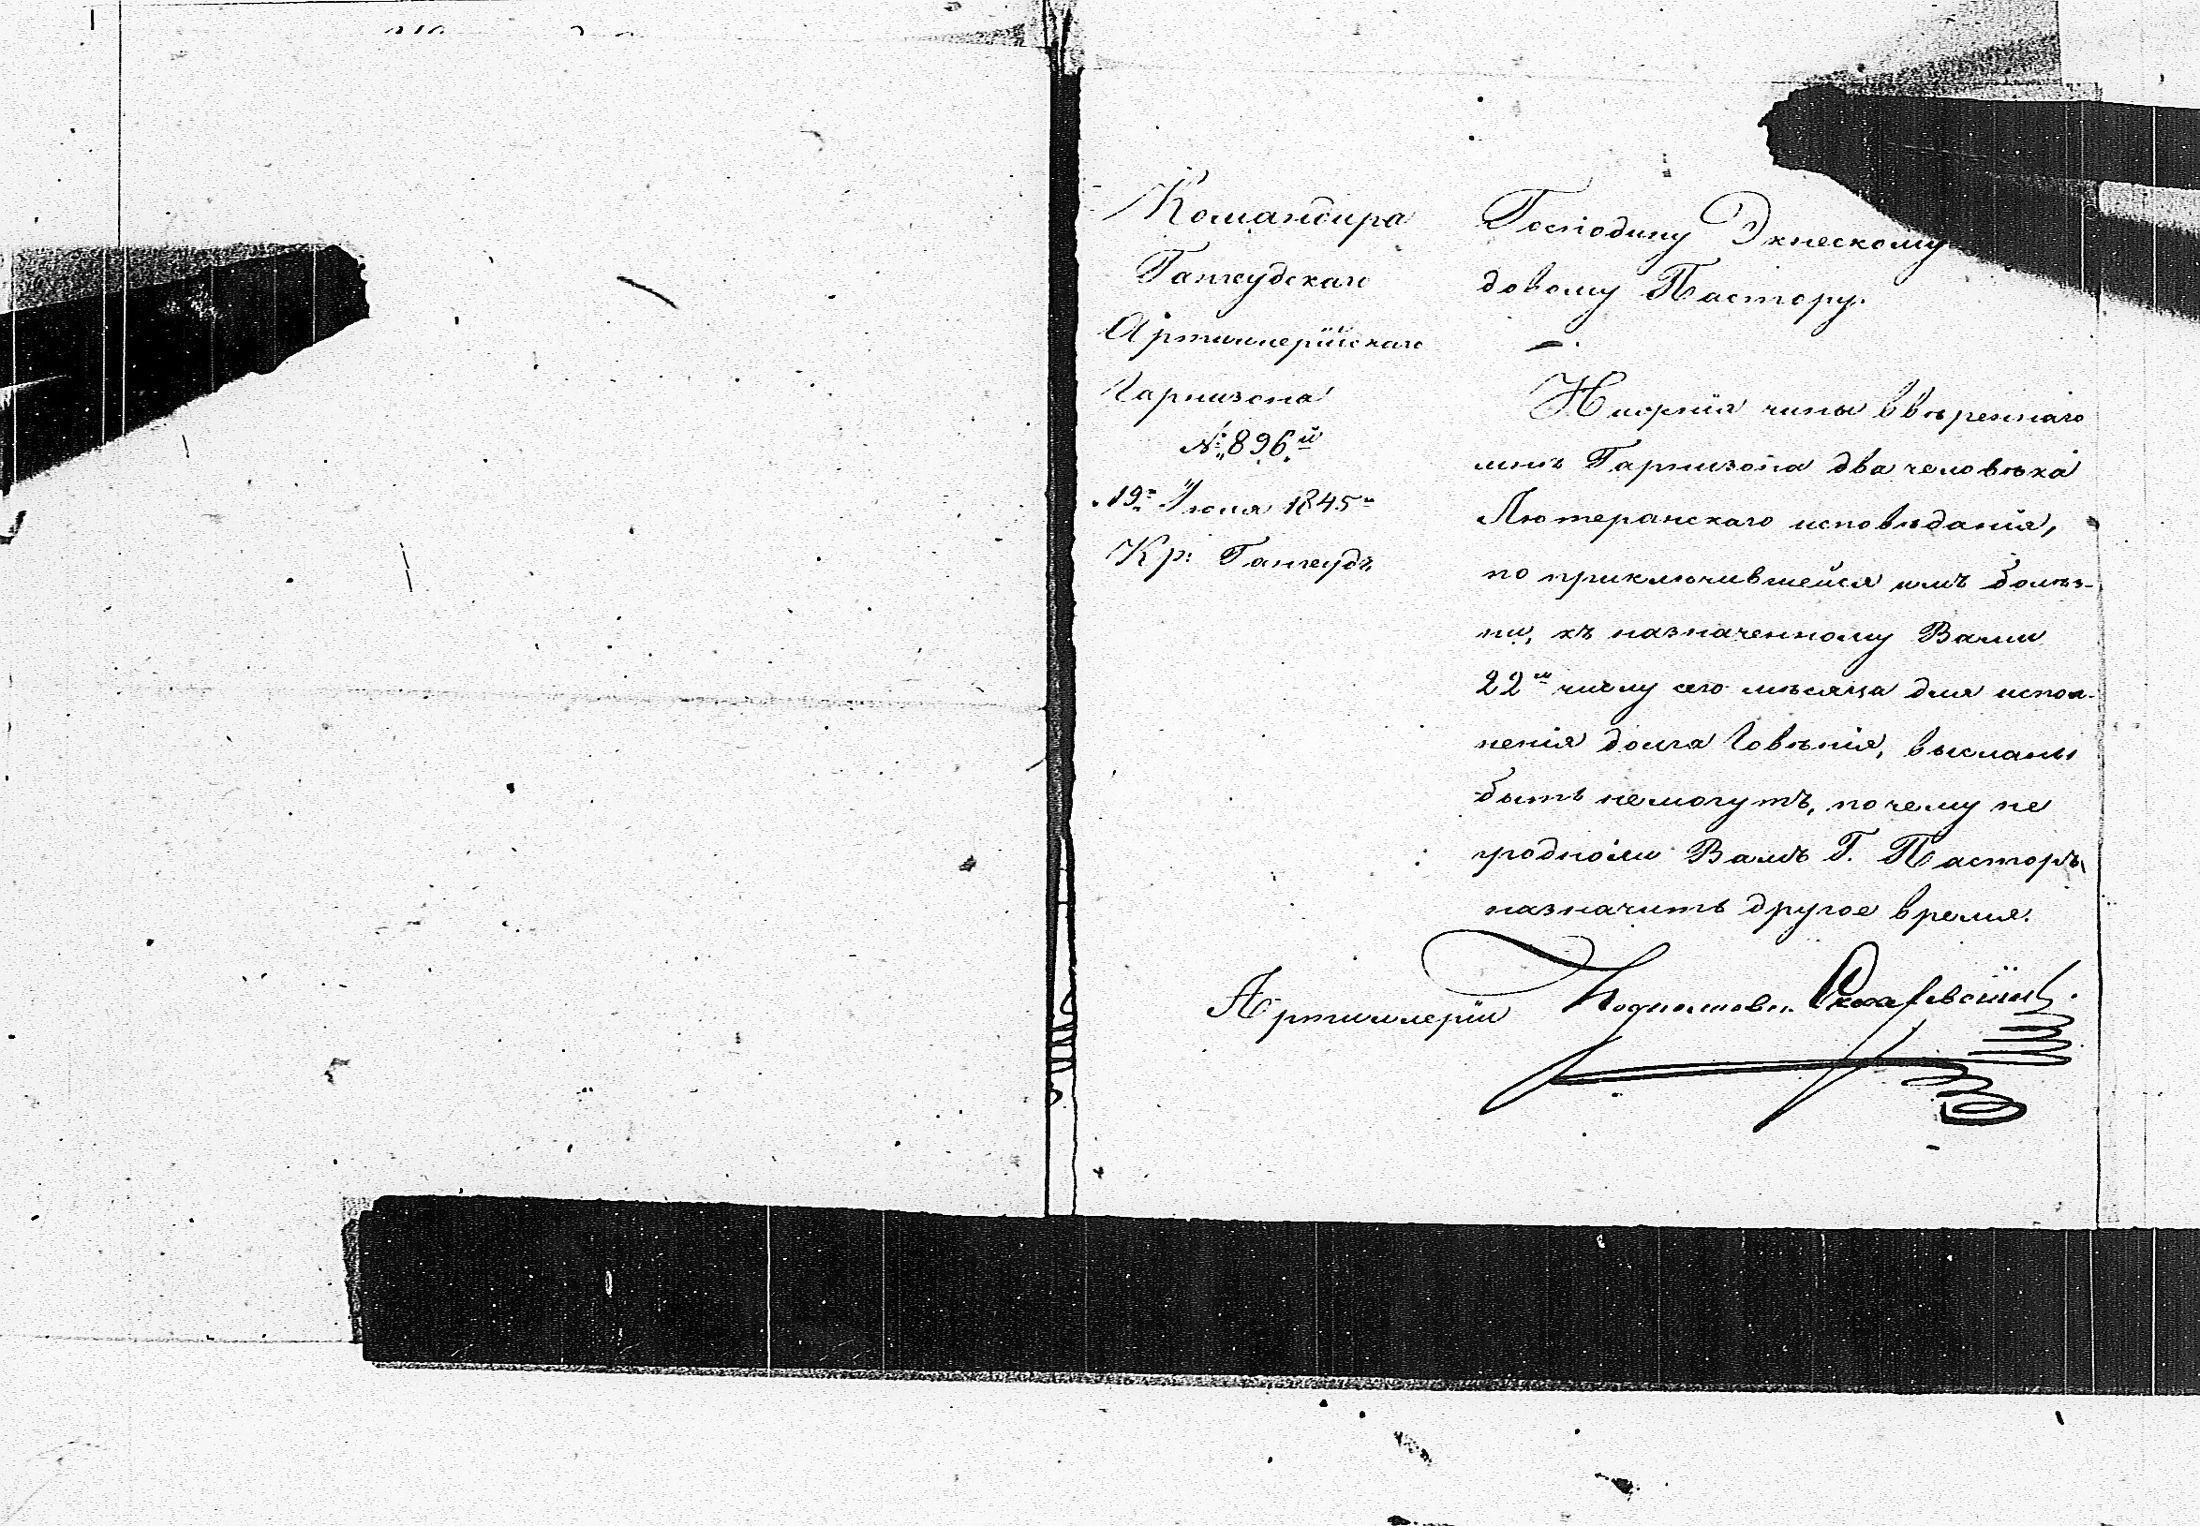 Командира
Гангеудскаго
Артиллерійскаго
Гарнизона
№ 896й
19го Іюля 1845го
Кр: Гангеудъ
Господину Экнескому
довому Пастору.
Нижнія чины ввѣреннаго
мнѣ Гарнизона два человѣка
Лютеранскаго исповѣданія,
по приключившейся имъ болѣз-
ни, къ назначенному Вами
22му числу сего мѣсяца для испол-
ненія долга Говѣнія, высланы
быть немогутъ, почему не
угодноли Вамъ Г. Пасторъ,
назначить другое время.
Артиллеріи Подполковн.